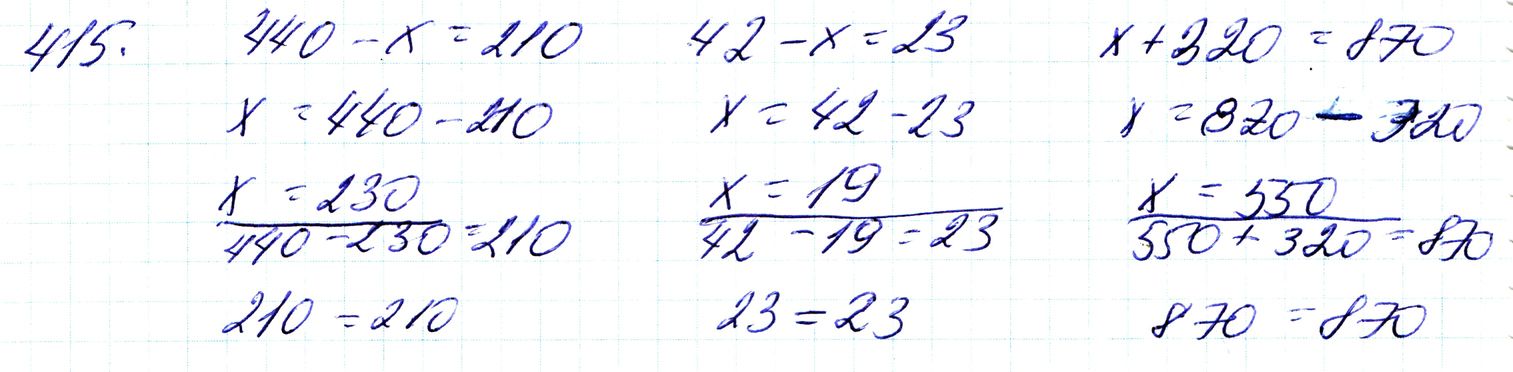 415. 440 - x = 210 42 - x = 23 x + 320 = 870
x = 440 - 210 x = 42 - 23 x = 870 - 320
x = 230 x = 19 x = 550
440 - 230 = 210 42 - 19 = 23 550 + 320 = 870
210 = 210 23 = 23 870 = 870